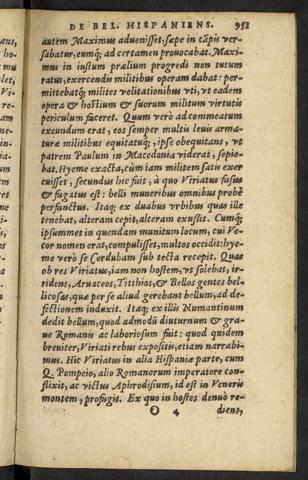 DE BEL. HISPANIENS. 951
autem Maximus aduenisset: sæpe in cāpis ver-
sabatur, eumq́; ad certamen prouocabat. Maxi-
mus in iustum prælium progredi non tutum
ratus, exercendii militibus operam dabat: per-
mittebatq́; milites velitationibus vti, vt eadem
opera & hostium & suorum militum virtutis
periculum faceret. Quum verò ad commeatum
exeundum erat, eos semper multis leuis arma-
turæ militibus equitatuq́;, ipse obequitans, vt
patrem Paulum in Macedonia viderat, sepie-
bat. Hyeme exacta, cùm iam militem satis exer-
cuisset, secundus hic fuit, à quo Viriatus fusus
& fugatus est: belli muneribus omnibus probè
perfunctus. Itaq; ex duabus vrbibus quas ille
tenebat, alteram cepit, alteram exussit. Cumq́;
ipsummet in quendam munitum locum, cui Ve-
cor nomen erat, compulisset, multos occidit: hye-
me verò se Cordubam sub tecta recepit. Quas
ob res Viriatus, iam non hostem, vt solebat, ir-
ridens, Aruaceos, Titthios, & Bellos gentes bel-
licosas, quæ per se aliud gerebant bellum, ad de-
fectionem induxit. Itaq; ex illis Numantinum
dedit bellum, quod admodū diuturnum & gra-
ue Romanis ac laboriosum fuit: quod quidem
breuiter, Viriati rebus expositis, etiam narrabi-
mus. Hic Viriatus in alia Hispaniæ parte, cum
Q. Pompeio, alio Romanorum imperatore con-
flixit, ac victus Aphrodisium, id est in Veneris
montem, profugit. Ex quo in hostes denuò re-
O 4 diens,